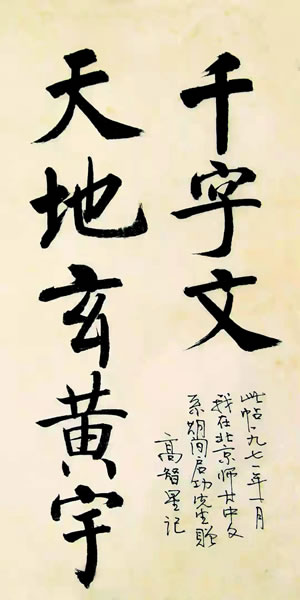 千字文
天地玄黄宇
此帖一九七一年十月
我在北京师大中文
系期间启功先生赠
高智星记